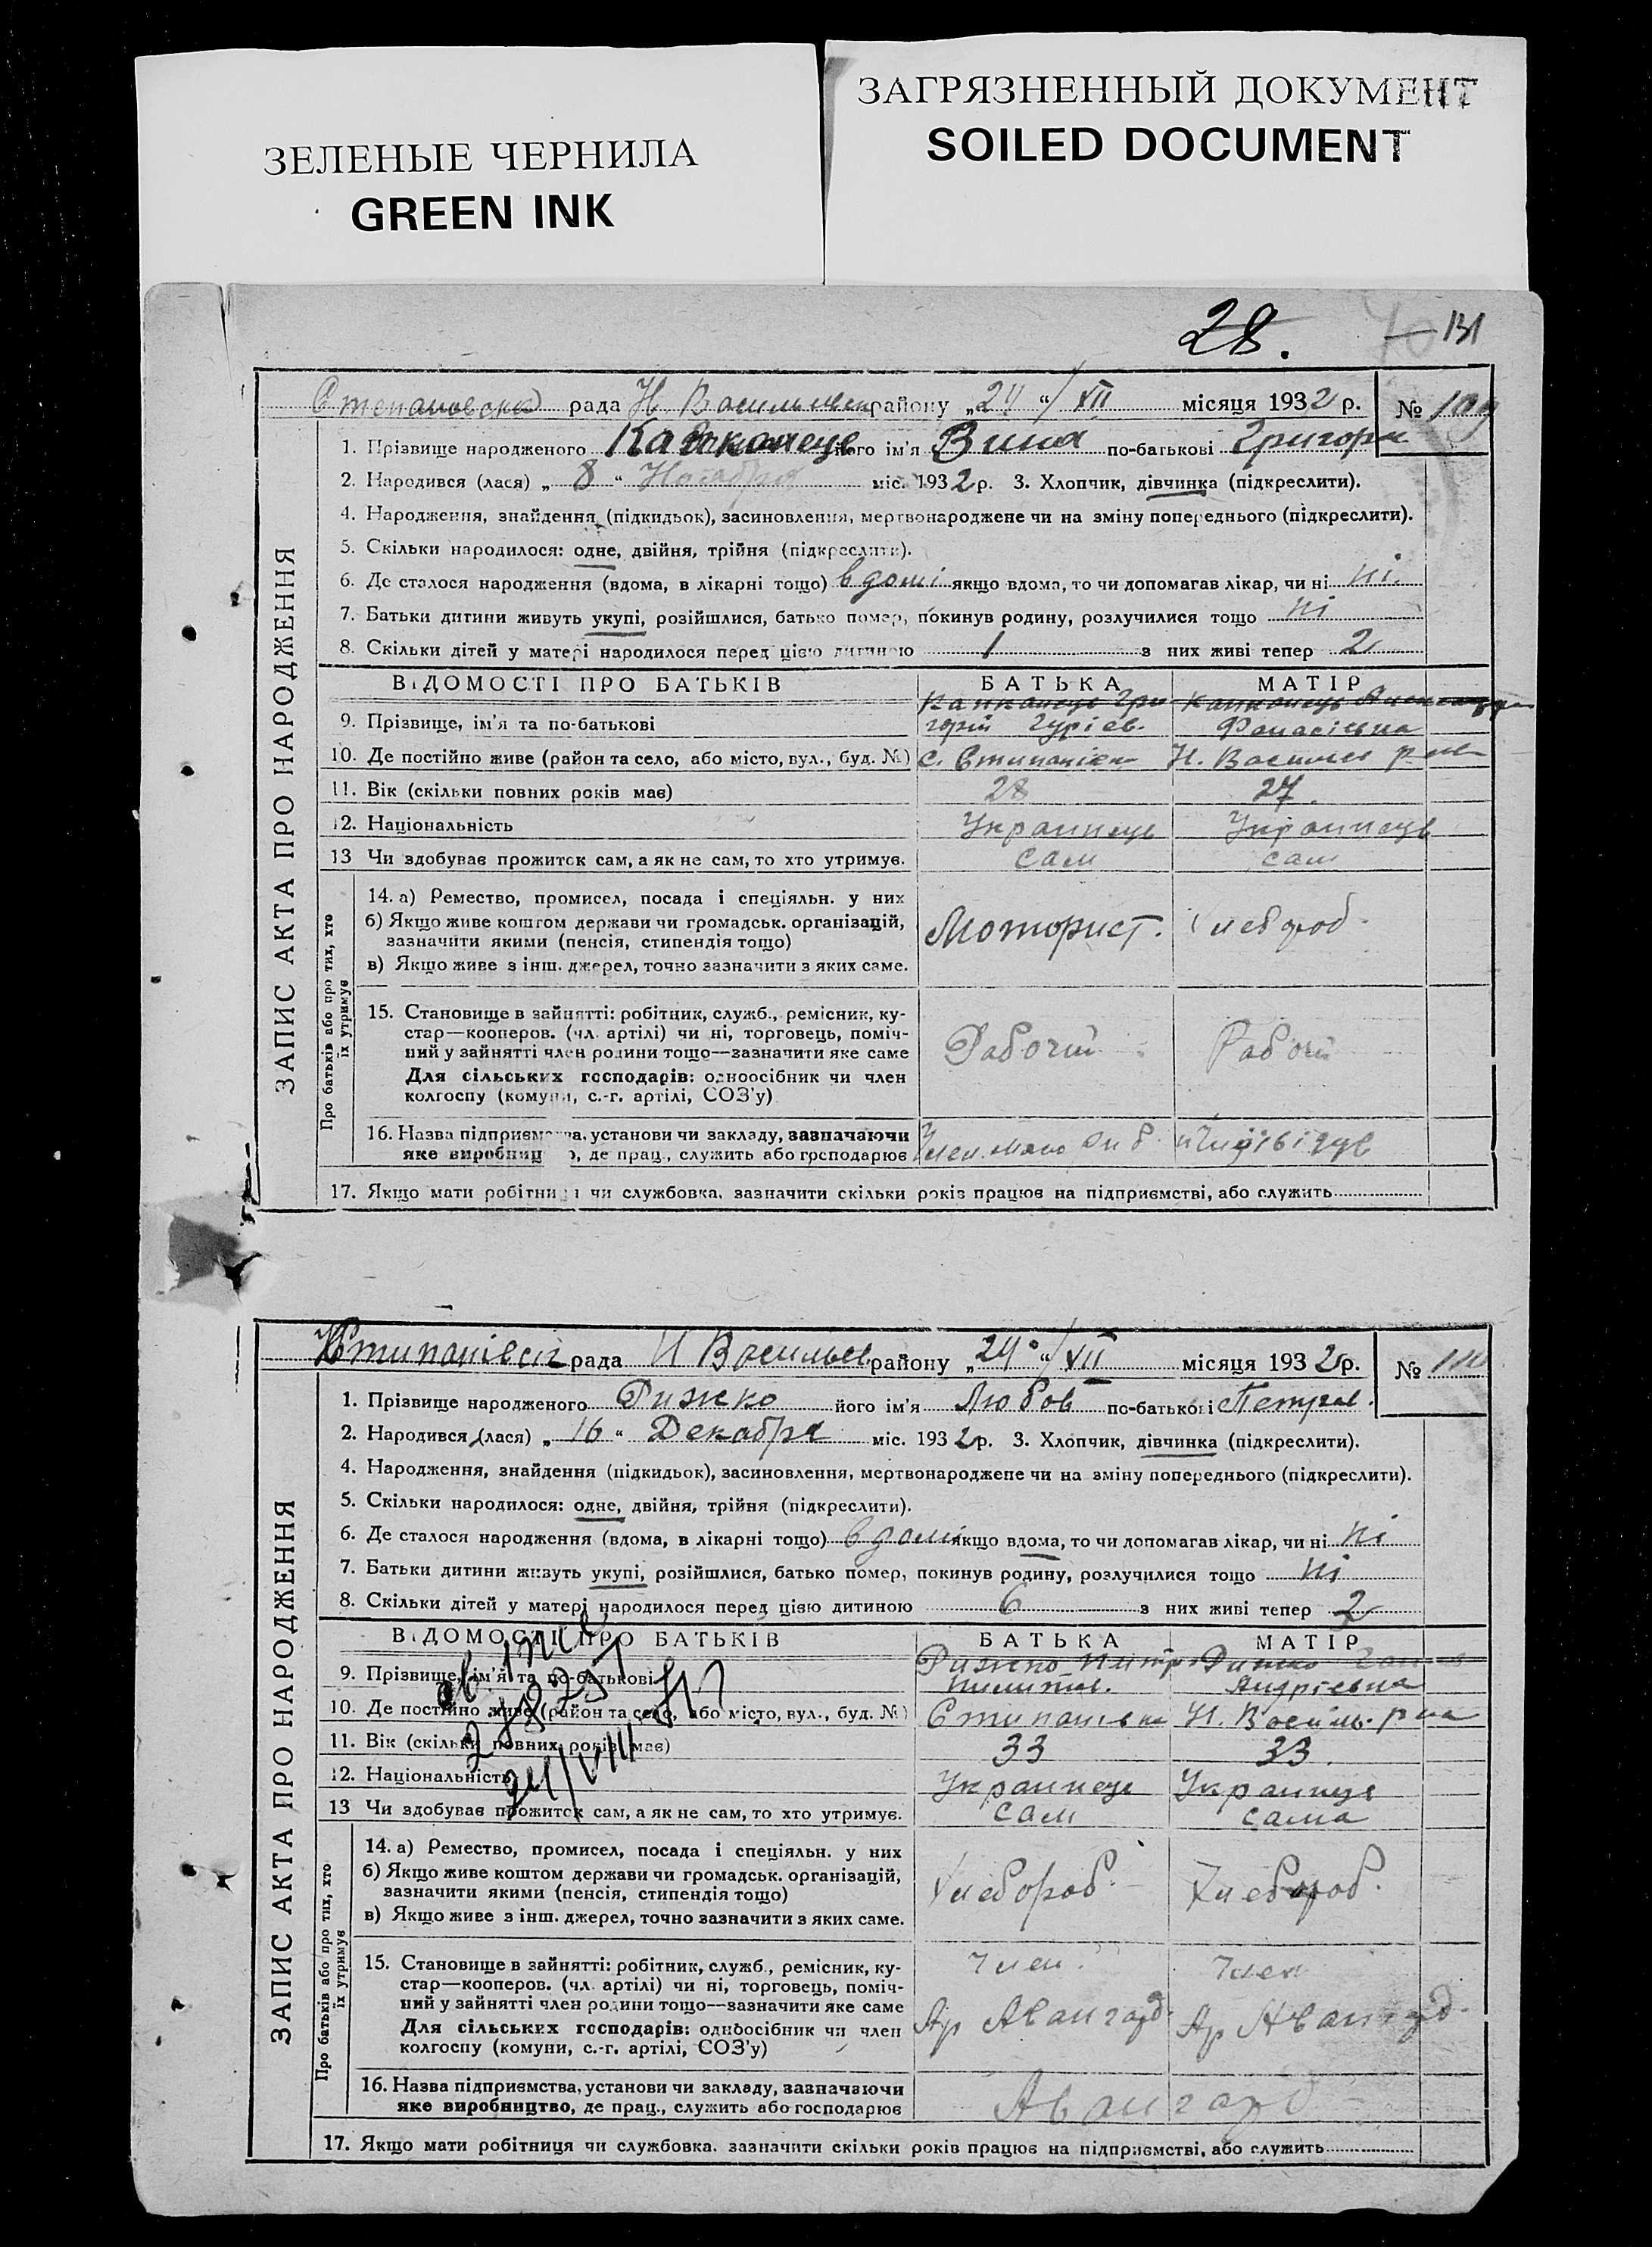 ЗЕЛЕНЫЕ ЧЕРНИЛА
GREEN INK
ЗАГРЯЗНЕННЫЙ ДОКУМЕНТ
SOILED DOCUMENT
28.
131
рада Н Васильевск району „24“/XII місяця 1932 р. № 109
ЗАПИС АКТА ПРО НАРОДЖЕННЯ
1. Прізвище народженого його ім'я по-батькові Григорн
2. Народився (лася) „8“ Ноября міс. 1932 р. 3. Хлопчик, дівчинка (підкреслити).
4. Народження, знайдення (підкидьок), засиновлення, мертвонароджене чи на зміну попереднього (підкреслити).
5. Скільки народилося: одне, двійня, трійня (підкреслити).
6. Де сталося народження (вдома, в лікарні тощо) в домі якщо вдома, то чи допомагав лікар, чи ні ні.
7. Батьки дитини живуть укупі, розійшлися, батько помер, покинув родину, розлучилися тощо ні
8. Скільки дітей у матері народилося перед цією дитиною 1 з них живі тепер 2
ВІДОМОСТІ ПРО БАТЬКІВ БАТЬКА МАТІР
9. Прізвище, ім'я та по-батькові Гри горій Гуріев. Фанасівна
10. Де постійно живе (район та село, або місто, вул., буд. №) с. Стипанівка Н. Васильев р
11. Вік (скільки повних років має) 28 27.
12. Національність Украинець Украинець
13 Чи здобуває прожиток сам, а як не сам, то хто утримує. сам сам
Про батьків або про тих, хто їх утримує
14. а) Ремество, промисел, посада і спеціяльн. у них
б) Якщо живе коштом держави чи громадськ. організацій,
зазначити якими (пенсія, стипендія тощо) Моторист. Хлебороб.
в) Якщо живе з інш. джерел, точно зазначити з яких саме.
15. Становище в зайнятті: робітник, служб., ремісник, ку-
стар—кооперов. (чл. артілі) чи ні, торговець, поміч-
ний у зайнятті член родини тощо—зазначити яке саме Рабочий Рабочий
Для сільських господарів: одноосібник чи член
колгоспу (комуни, с.-г. артілі, СОЗ'у)
16. Назва підприємства, установи чи закладу, зазначаючи
яке виробництво, де прац., служить або господарює
17. Якщо мати робітниця чи службовка, зазначити скільки років працює на підприємстві, або служить
Стипанівск рада Н Васильев району „24“/XII місяця 1932 р. № 110
ЗАПИС АКТА ПРО НАРОДЖЕННЯ
1. Прізвище народженого Рижко його ім'я Любов по-батькові Петров.
2. Народився (лася) „16“ Декабря міс. 1932 р. 3. Хлопчик, дівчинка (підкреслити).
4. Народження, знайдення (підкидьок), засиновлення, мертвонароджене чи на зміну попереднього (підкреслити).
5. Скільки народилося: одне, двійня, трійня (підкреслити).
6. Де сталося народження (вдома, в лікарні тощо) в домі якщо вдома, то чи допомагав лікар, чи ні ні
7. Батьки дитини живуть укупі, розійшлися, батько помер, покинув родину, розлучилися тощо ні
8. Скільки дітей у матері народилося перед цією дитиною 6 з них живі тепер 2
ВІДОМОСТІ ПРО БАТЬКІВ БАТЬКА МАТІР
9. Прізвище, ім'я та по-батькові Рижко Питро Рижко Андріевна
10. Де постійно живе (район та село, або місто, вул., буд. №) Стипанівка Н. Василь. р на
11. Вік (скільки повних років має) 33 33
12. Національність Украинець Украинець
13 Чи здобуває прожиток сам, а як не сам, то хто утримує. сам сама
24/VIII
Про батьків або про тих, хто їх утримує
14. а) Ремество, промисел, посада і спеціяльн. у них
б) Якщо живе коштом держави чи громадськ. організацій,
зазначити якими (пенсія, стипендія тощо) Хлебороб. Хлебороб.
в) Якщо живе з інш. джерел, точно зазначити з яких саме.
15. Становище в зайнятті: робітник, служб., ремісник, ку- Член. Член
стар—кооперов. (чл. артілі) чи ні, торговець, поміч-
ний у зайнятті член родини тощо—зазначити яке саме Ар Авангард. Ар Авангард.
Для сільських господарів: одноосібник чи член
колгоспу (комуни, с.-г. артілі, СОЗ'у)
16. Назва підприємства, установи чи закладу, зазначаючи
яке виробництво, де прац., служить або господарює Авангард
17. Якщо мати робітниця чи службовка, зазначити скільки років працює на підприємстві, або служить